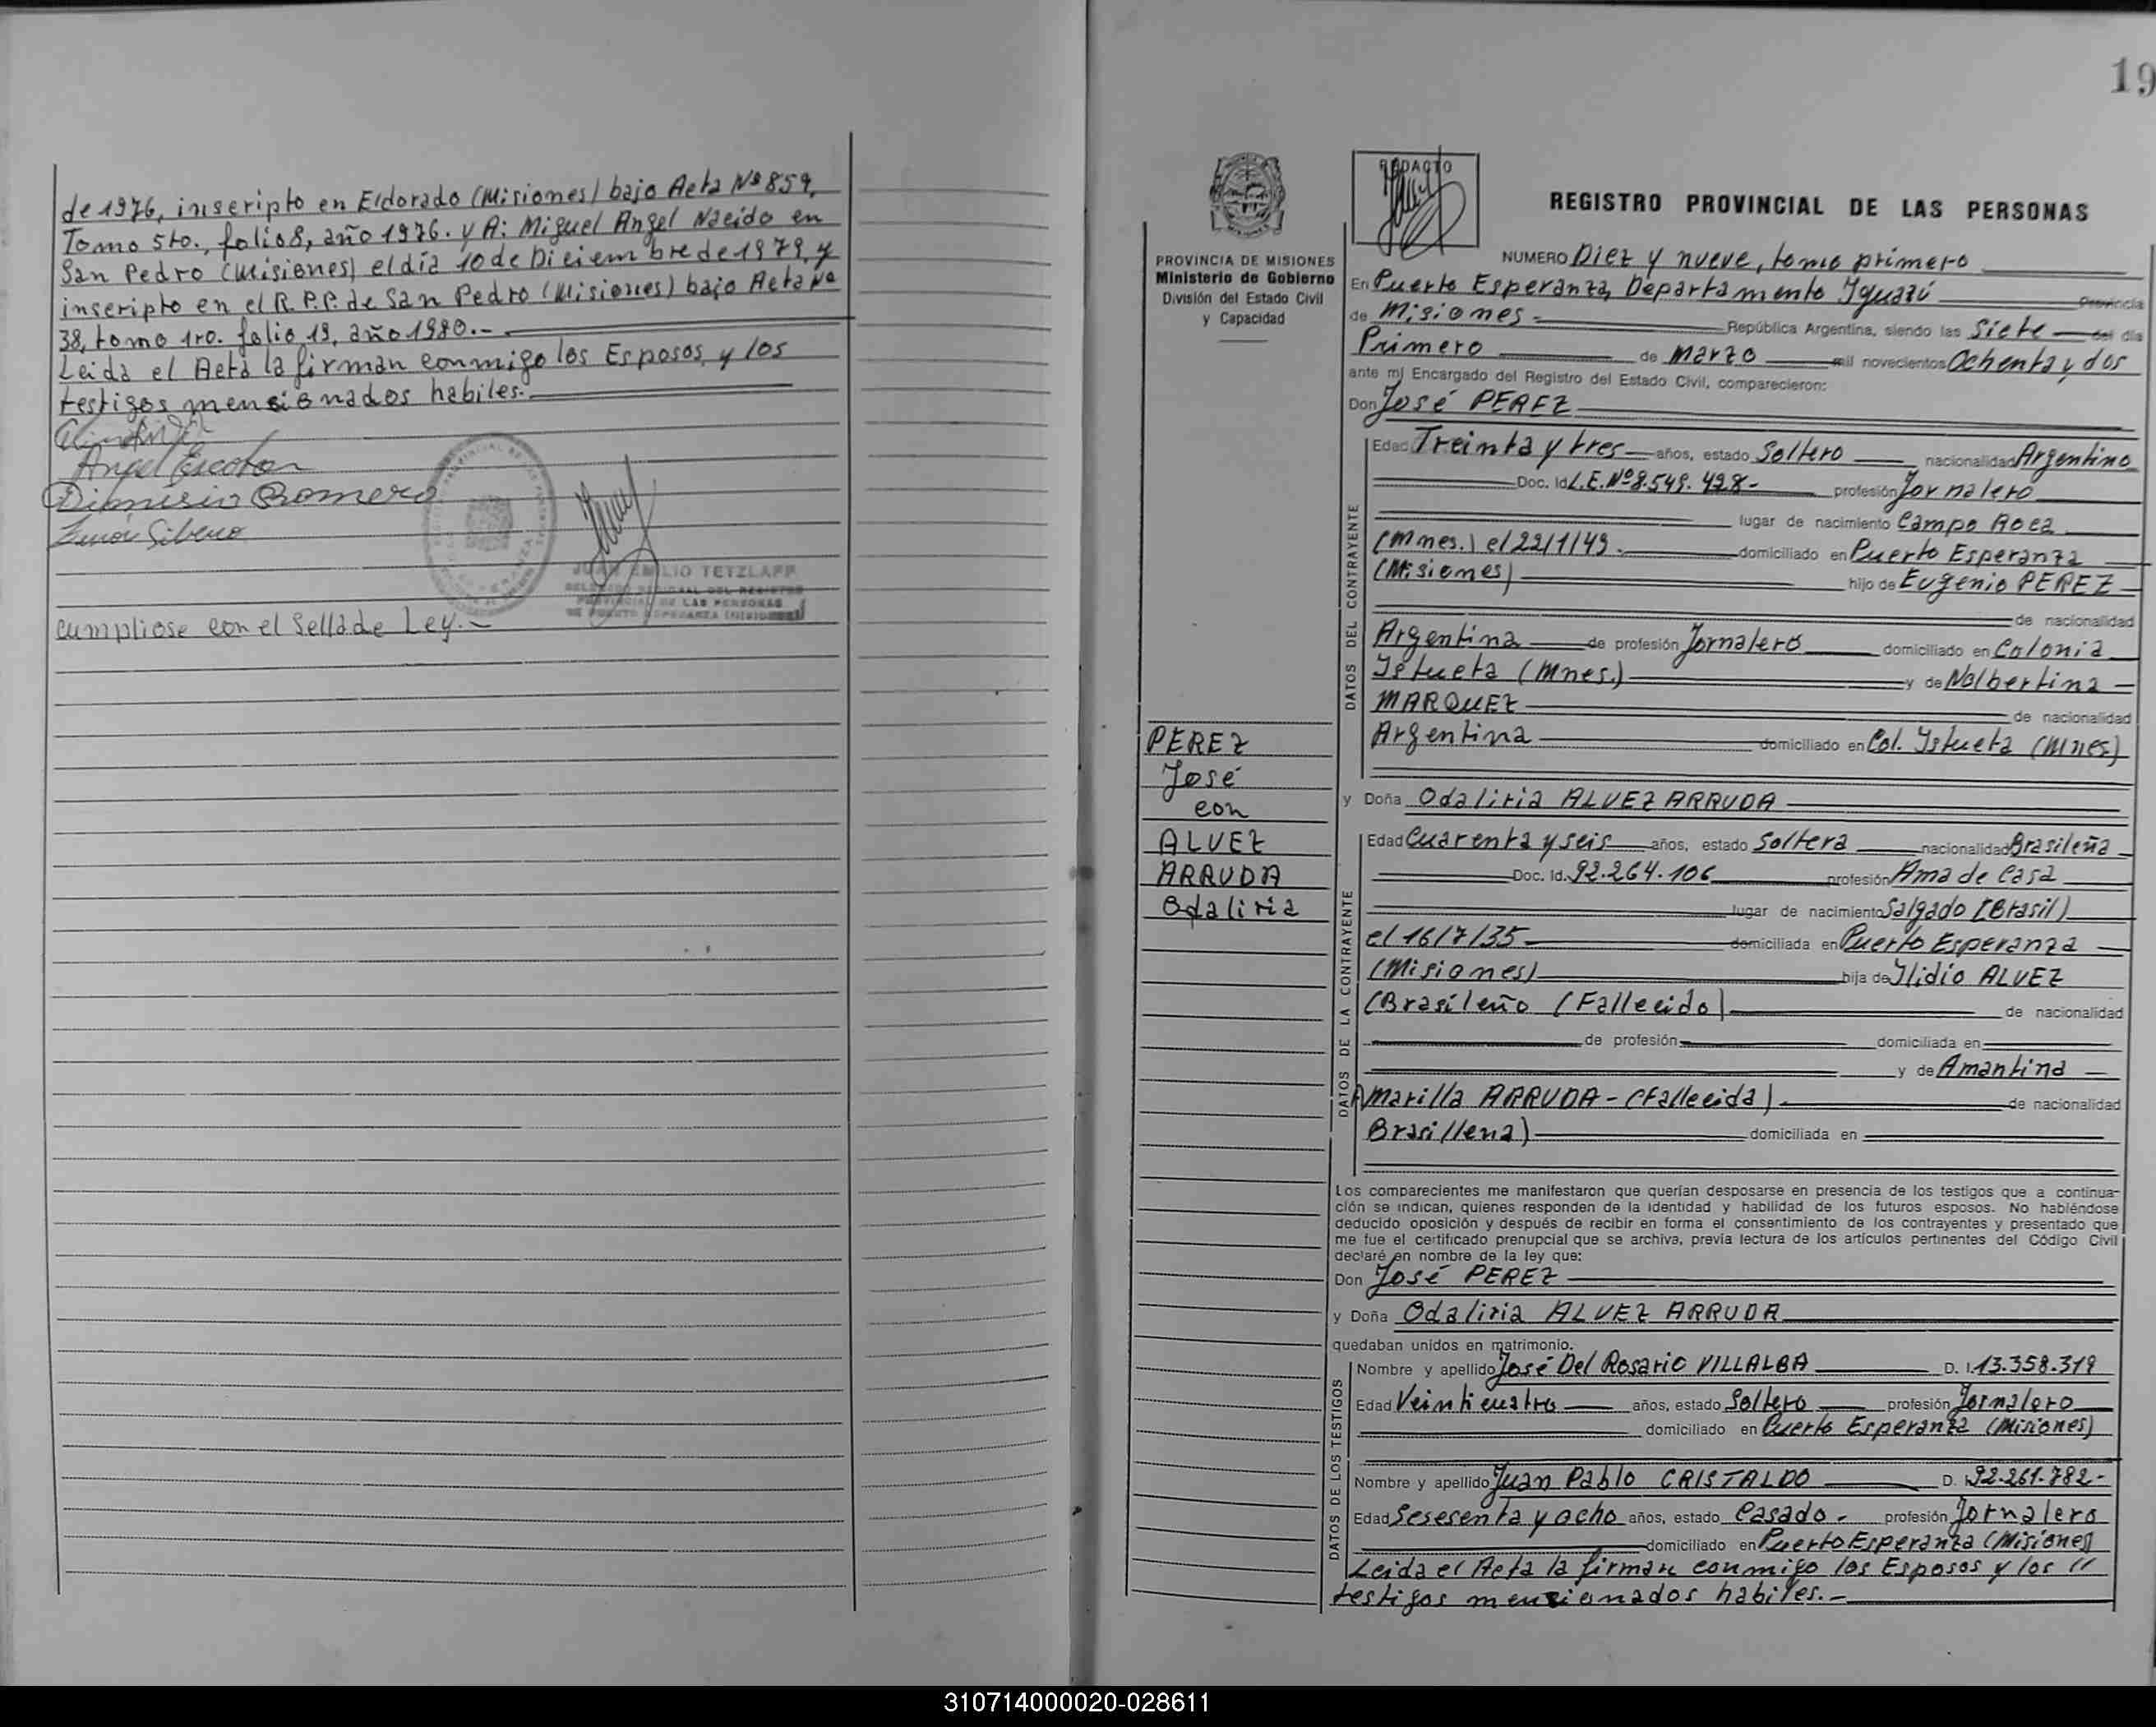 de 1976, inscripto en Eldorado (Misiones) bajo Acta Nº 859,
Tomo 5to., folio 8, año 1976. y A: Miguel Angel Nacido en
San Pedro (Misiones) el día 10 de Diciembre de 1979, y
inscripto en el R.P.P. de San Pedro (Misiones) bajo Acta Nº
38, tomo 1ro. folio 19, año 1980.-
Leida el Acta la firman conmigo los Esposos, y los
testigos mencionados habiles.-
Angel Escobar
Dionisio Romero
JUAN EMILIO TETZLAFF
DELEGADO REGIONAL DEL REGISTRO
PROVINCIAL DE LAS PERSONAS
DE PUERTO ESPERANZA (MISIONES)
cumpliose con el Sellado de Ley.-
19
PROVINCIA DE MISIONES
Ministerio de Gobierno
División del Estado Civil
y Capacidad
PEREZ
José
con
ALVEZ
ARRUDA
Odaliria
REDACTO
REGISTRO PROVINCIAL DE LAS PERSONAS
NUMERO Diez y nueve, tomo primero
En Puerto Esperanza, Departamento Yguazú Provincia
de Misiones.- República Argentina, siendo las Siete del día
Primero de Marzo mil novecientos Ochenta y dos
ante mí Encargado del Registro del Estado Civil, comparecieron:
Don José PEREZ
DATOS DEL CONTRAYENTE
Edad Treinta y tres años, estado Soltero nacionalidad Argentino
Doc. Id. L.E. Nº 8.549.428- profesión Jornalero
lugar de nacimiento Campo Roca
(Mnes.) el 22/1/49. domiciliado en Puerto Esperanza
(Misiones) hijo de Eugenio PEREZ
de nacionalidad
Argentina de profesión Jornalero domiciliado en Colonia
Istueta (Mnes.) y de Nolbertina
MARQUEZ de nacionalidad
Argentina domiciliado en Col. Istueta (Mnes)
y Doña Odaliria ALVEZ ARRUDA
DATOS DE LA CONTRAYENTE
Edad Cuarenta y seis años, estado Soltera nacionalidad Brasileña
Doc. Id. 92.264.106 profesión Ama de Casa
lugar de nacimiento Salgado (Brasil)
el 16/7/35 domiciliada en Puerto Esperanza
(Misiones) hija de Ilidio ALVEZ
(Brasileño (Fallecido) de nacionalidad
de profesión domiciliada en
y de Amantina
Amarilla ARRUDA - (Fallecida) de nacionalidad
Brasillena) domiciliada en
Los comparecientes me manifestaron que querían desposarse en presencia de los testigos que a continua-
ción se indican, quienes responden de la identidad y habilidad de los futuros esposos. No habiéndose
deducido oposición y después de recibir en forma el consentimiento de los contrayentes y presentado que
me fue el certificado prenupcial que se archiva, previa lectura de los artículos pertinentes del Código Civil
declaré en nombre de la ley que:
Don José PEREZ
y Doña Odaliria ALVEZ ARRUDA
quedaban unidos en matrimonio.
DATOS DE LOS TESTIGOS
Nombre y apellido José Del Rosario VILLALBA D. I. 13.358.319
Edad Veinticuatro años, estado Soltero profesión Jornalero
domiciliado en Puerto Esperanza (Misiones)
Nombre y apellido Juan Pablo CRISTALDO D. 92.261.782-
Edad Sesesenta y ocho años, estado Casado. profesión Jornalero
domiciliado en Puerto Esperanza (Misiones)
Leida el Acta la firman conmigo los Esposos y los "
testigos mencionados habiles.-
310714000020-028611